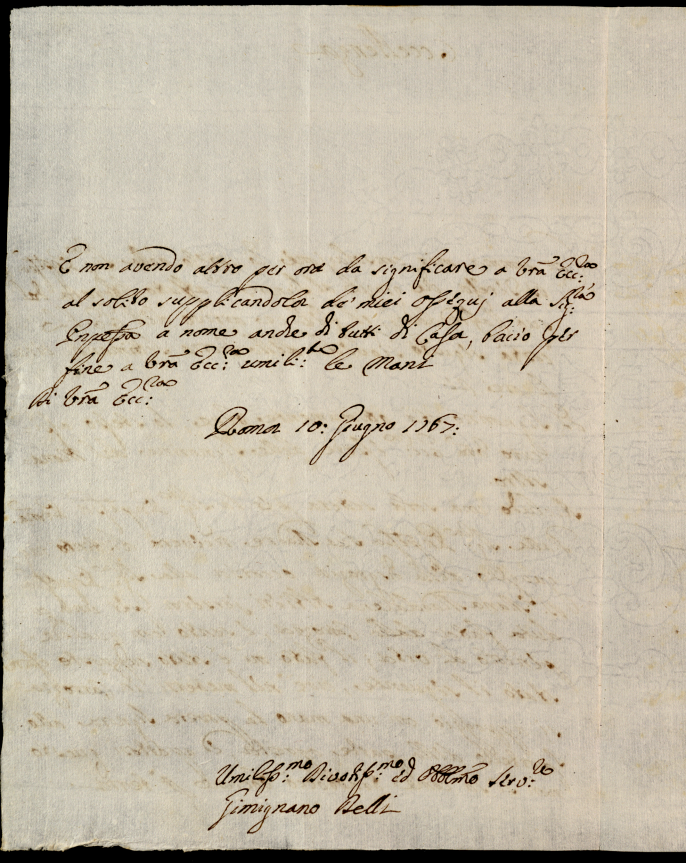 E non avendo altro per ora da significare a Vrã Ecc:za
al solito supplicandola de' miei ossequj alla Sig:ra
Enpessa a nome anche di tutti di Casa, bacio per
fine a Vrã Ecc:za umili:te le Mani
Di Vrã Ecc:za
Roma 10: Giugno 1767:
Umiliss:mo Divotiss:mo ed Obblmõ Serv:re
Gimignano Belli